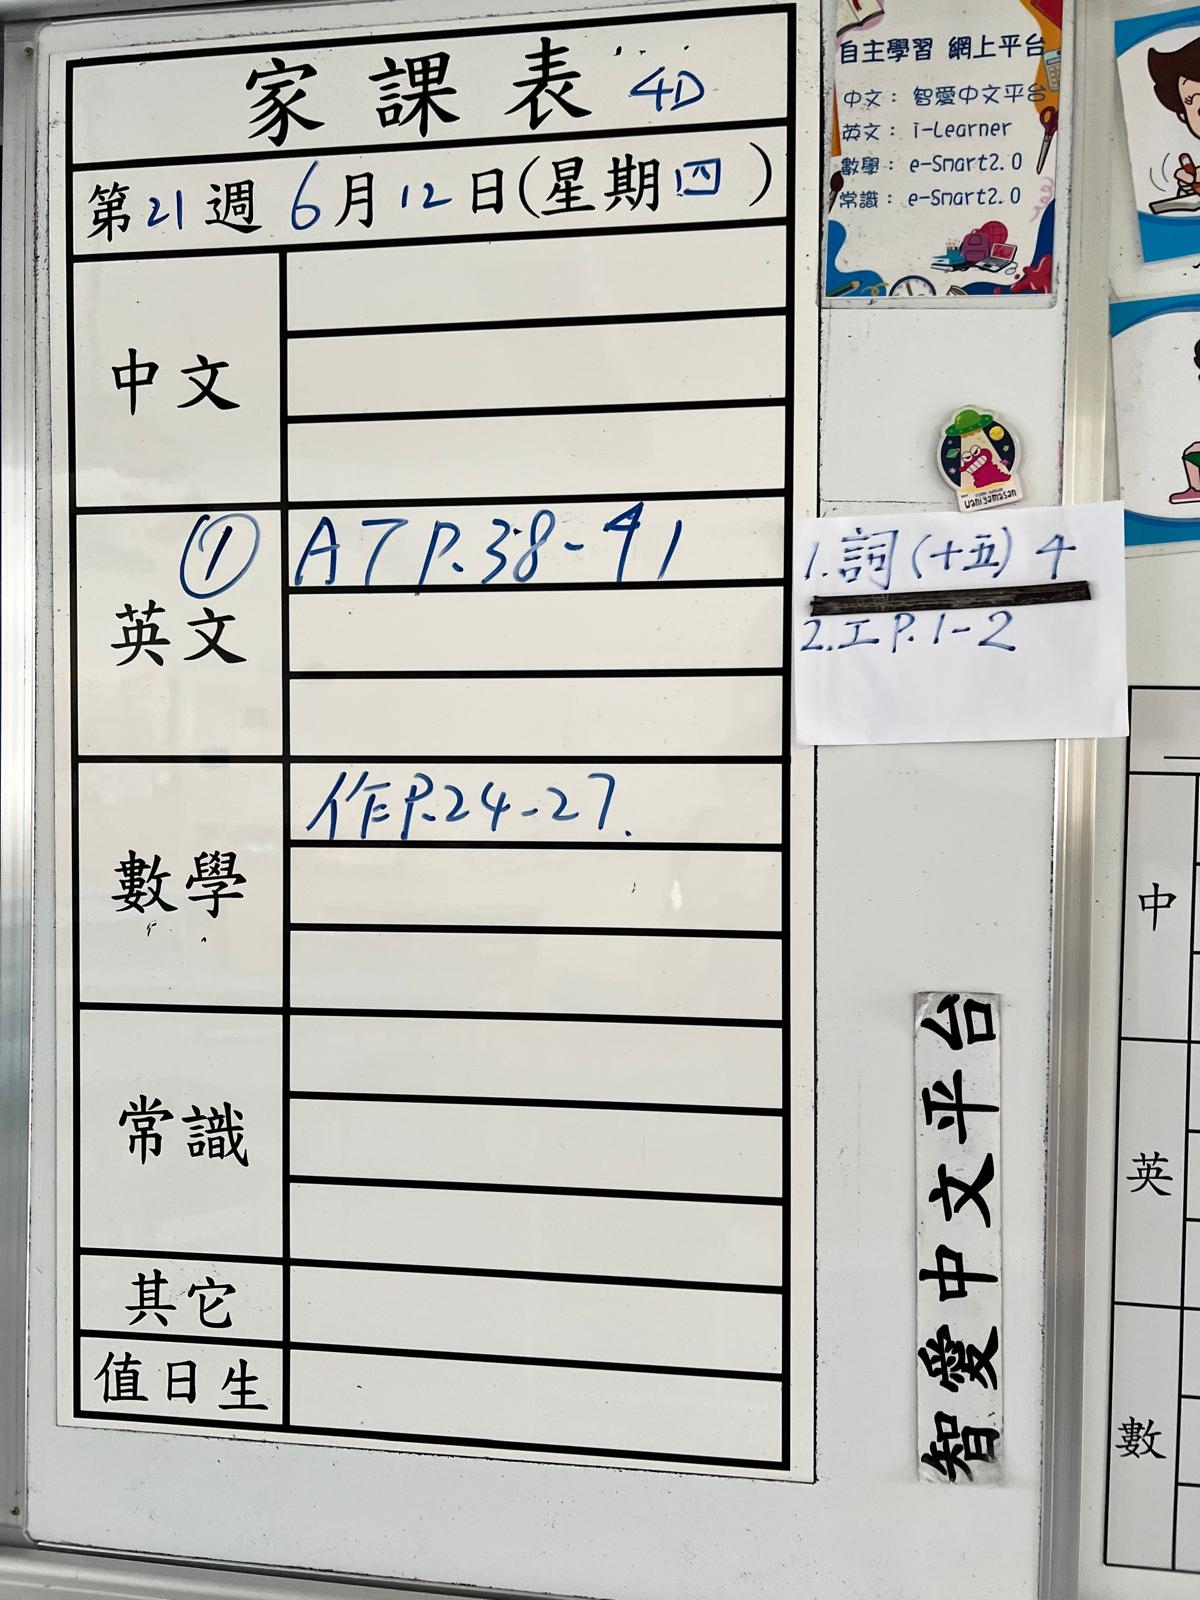 家課表 4D
第21週 6月12日(星期四)
中文
英文 ① AT P.38-41
數學 作P.24-27.
常識
其它
值日生
自主學習 網上平台
中文: 智愛中文平台
英文: i-Learner
數學: e-Smart2.0
常識: e-Smart2.0
Wani yamasan
1.詞(十五)4
2.工P.1-2
智愛中文平台
中
英
數